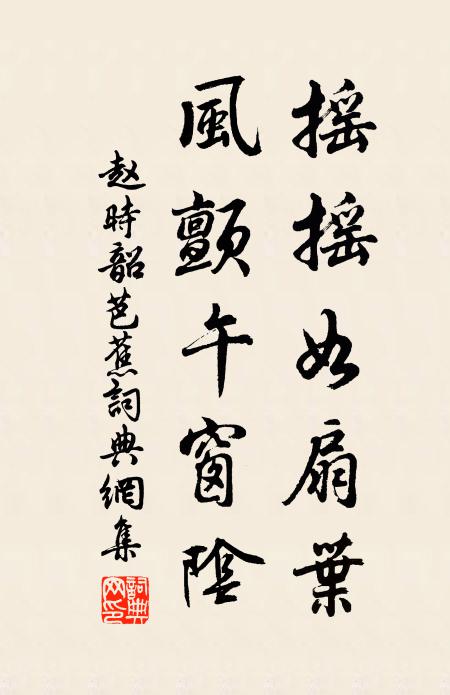 搖搖如扇葉
風顫午窗陰
赵時韶芭蕉詞典網集
詞典网印